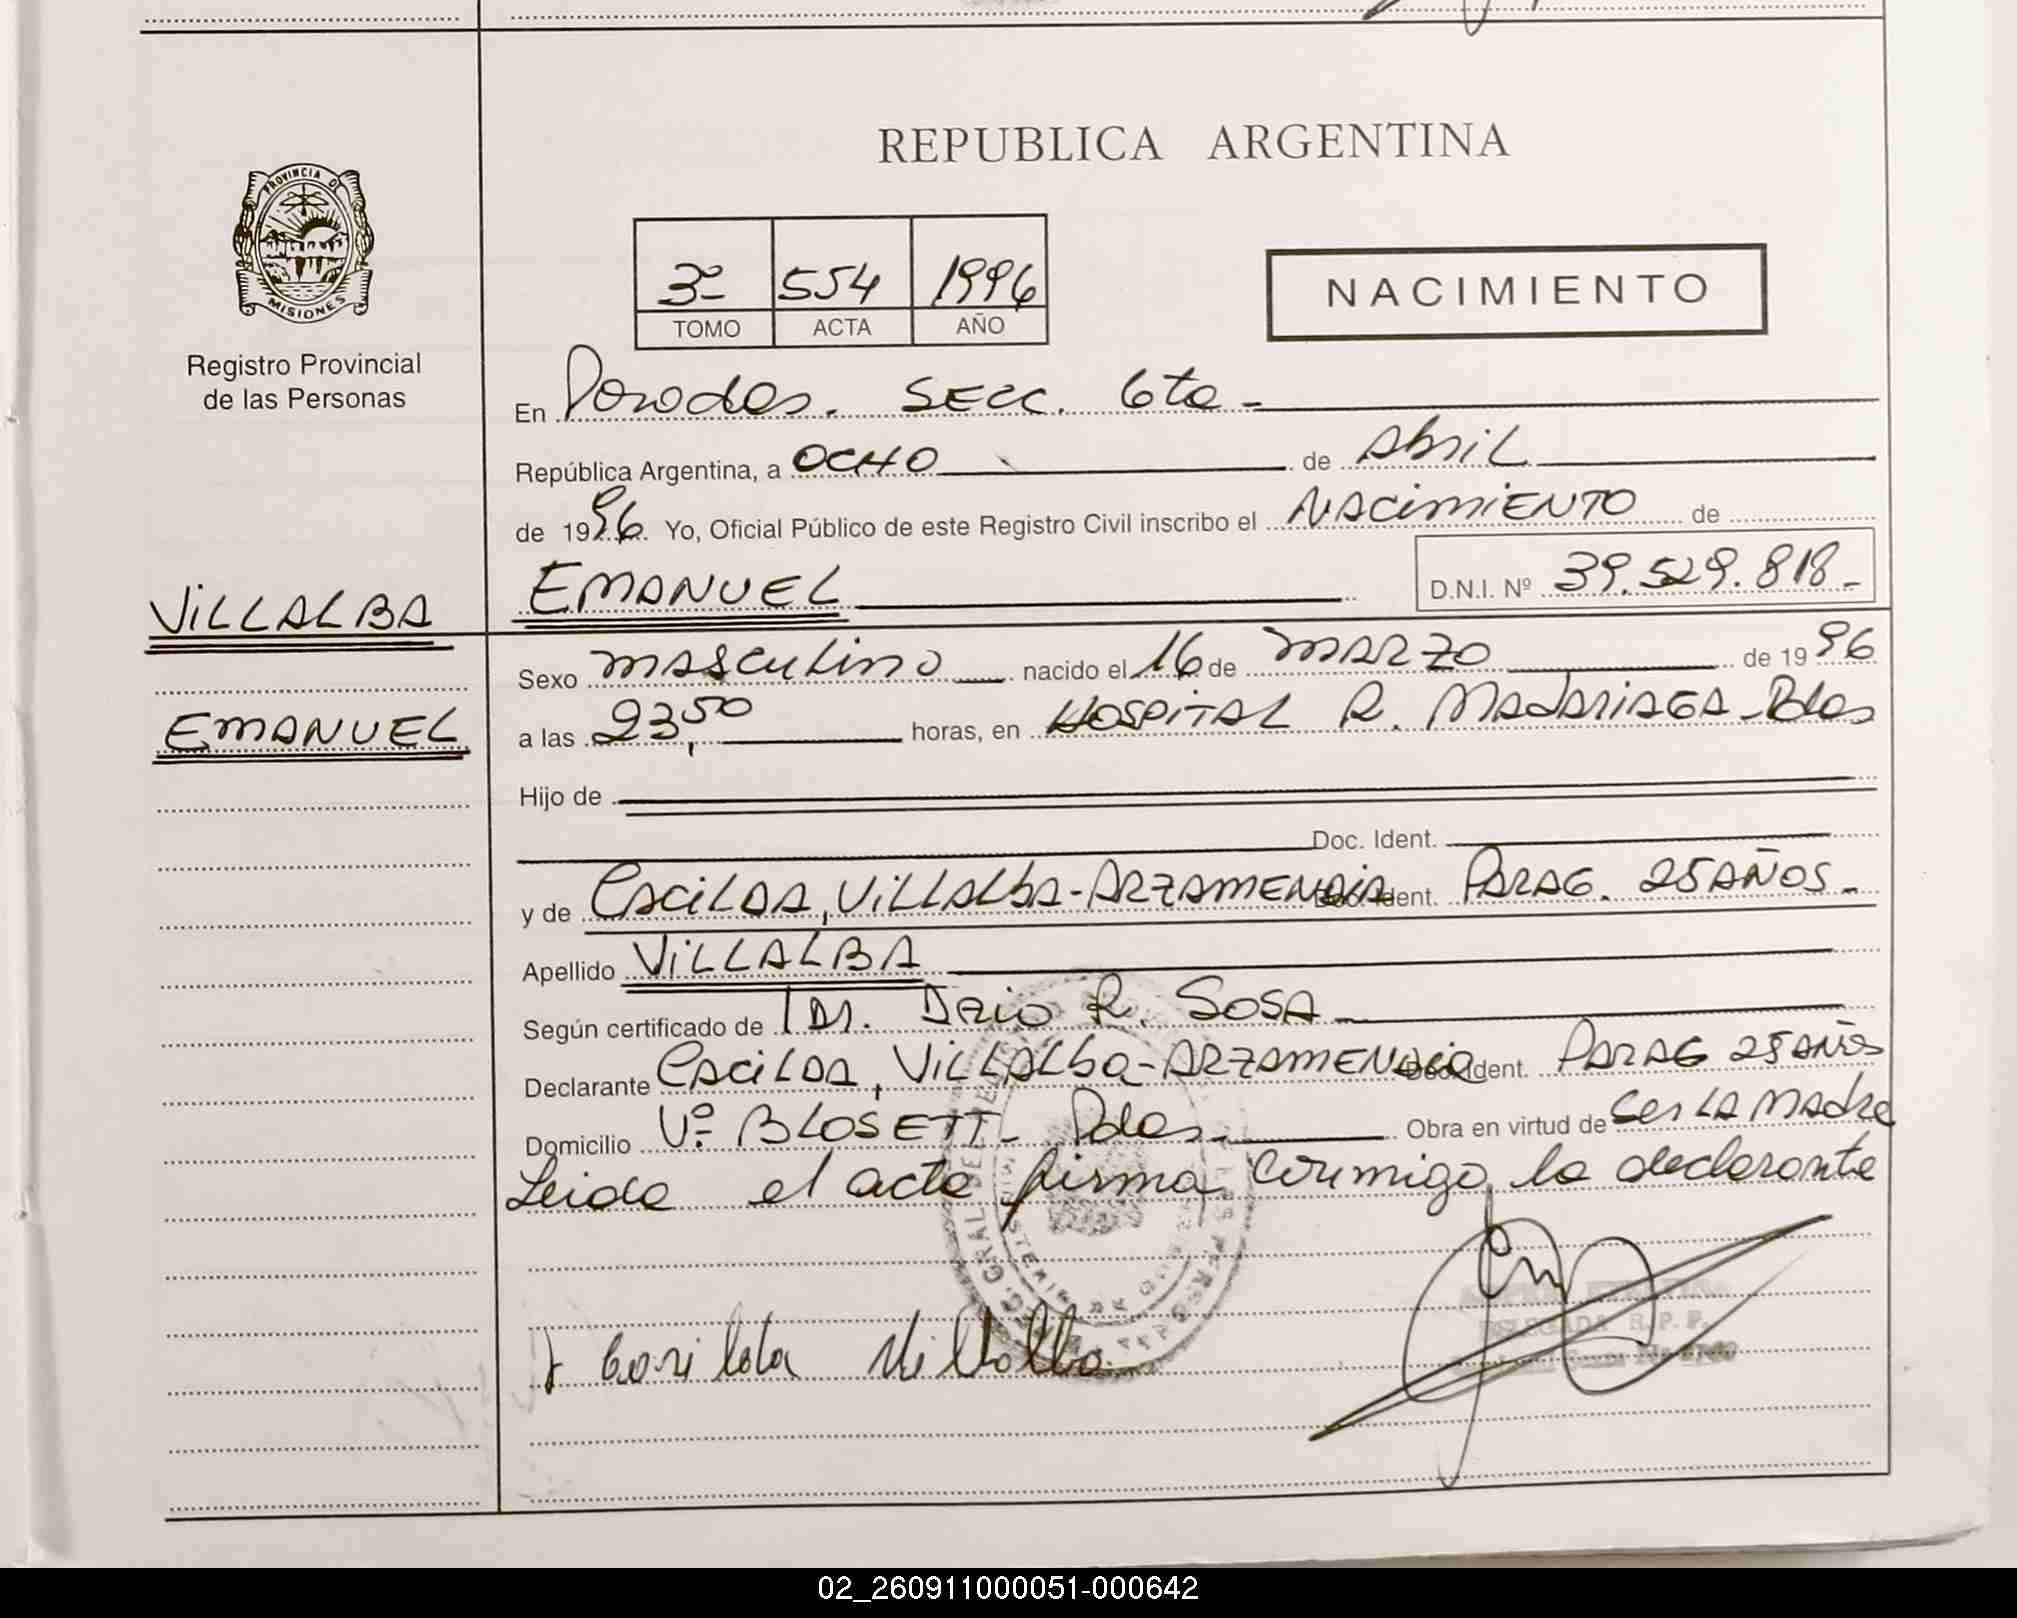 REPUBLICA ARGENTINA
PROVINCIA DE
MISIONES
Registro Provincial
de las Personas
3º 554 1996
TOMO ACTA AÑO
NACIMIENTO
En Posadas. SECC. 6ta -
República Argentina, a OCHO de Abril
de 1996. Yo, Oficial Público de este Registro Civil inscribo el NACIMIENTO de
EMANUEL D.N.I. Nº 39.529.818-
VILLALBA
EMANUEL
Sexo masculino nacido el 16 de MARZO de 1996
a las 23,50 horas, en HOSPITAL R. MADARIAGA - Pdas
Hijo de
Doc. Ident.
y de CACILDA, VILLALBA - ARZAMENDIA Doc. Ident. PARAG. 25 AÑOS -
Apellido VILLALBA
Según certificado de R. SOSA
Declarante CACILDA, VILLALBA - ARZAMENDIA Doc. Ident. PARAG 25 AÑOS
Domicilio Vº BLOSETT - Pdas - Obra en virtud de ser LA MADRE
Leida el acta firma conmigo la declarante
Villalba
DELEGADA R. P. P.
02_260911000051-000642